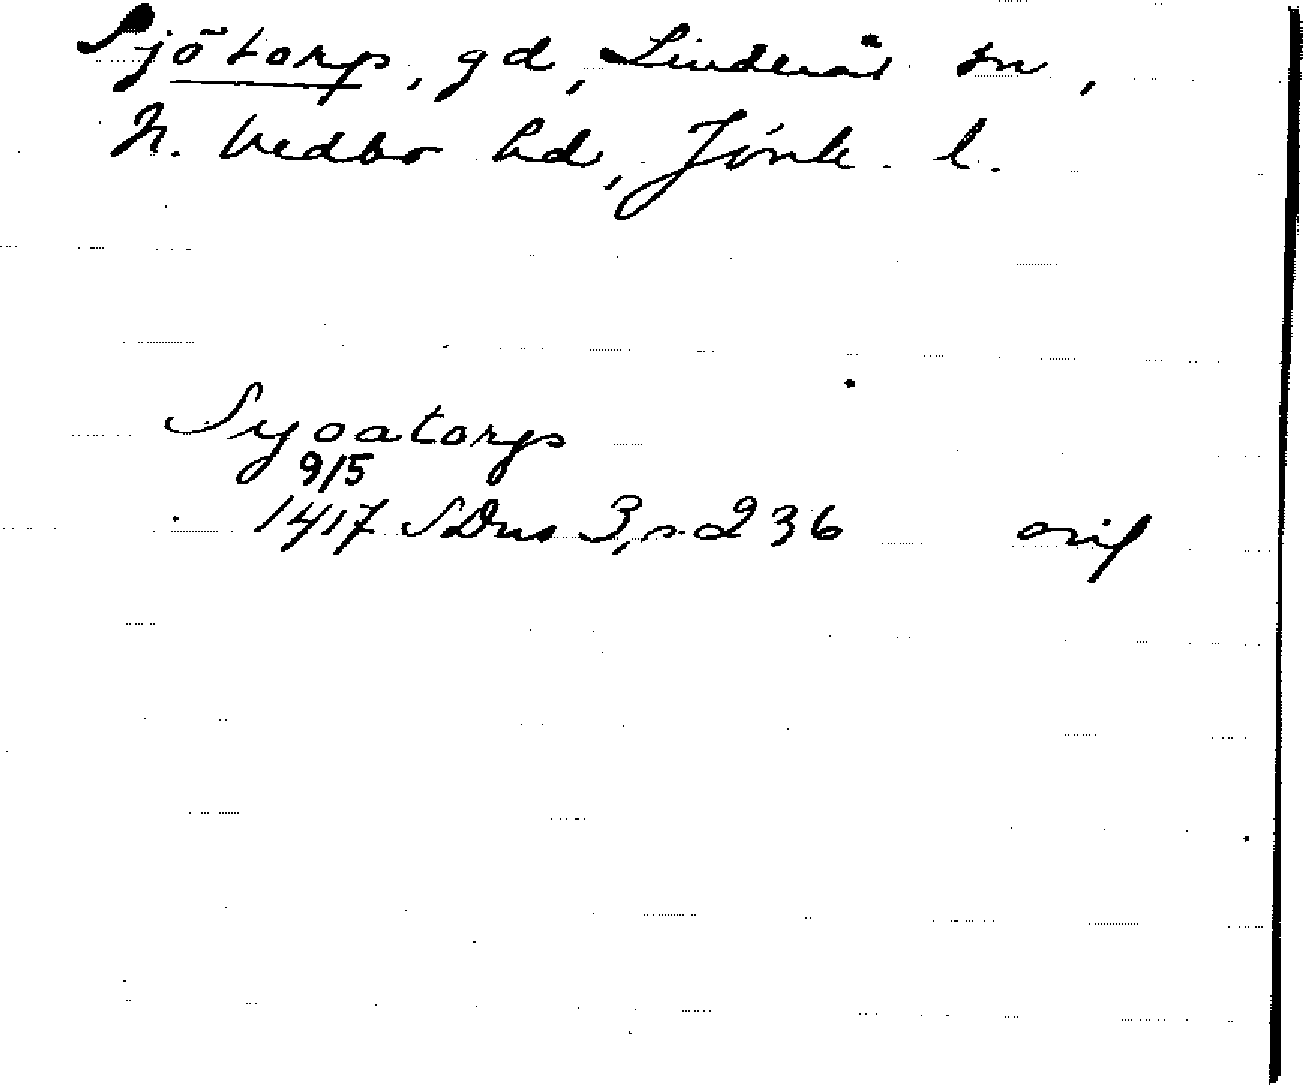 Sjötorp, gd, Linderås sn,
N. Vedbo hd, Jönk. l.
Syoatorp
9/5
1417 SDns 3, s. 236 orig